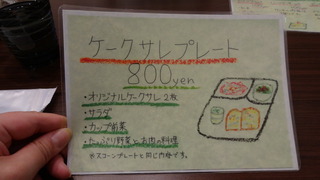 ケークサレプレート
800yen
・オリジナルケークサレ2枚
・サラダ
・カップ前菜
・たっぷり野菜とお肉の料理
※スコーンプレートと同じ内容です。